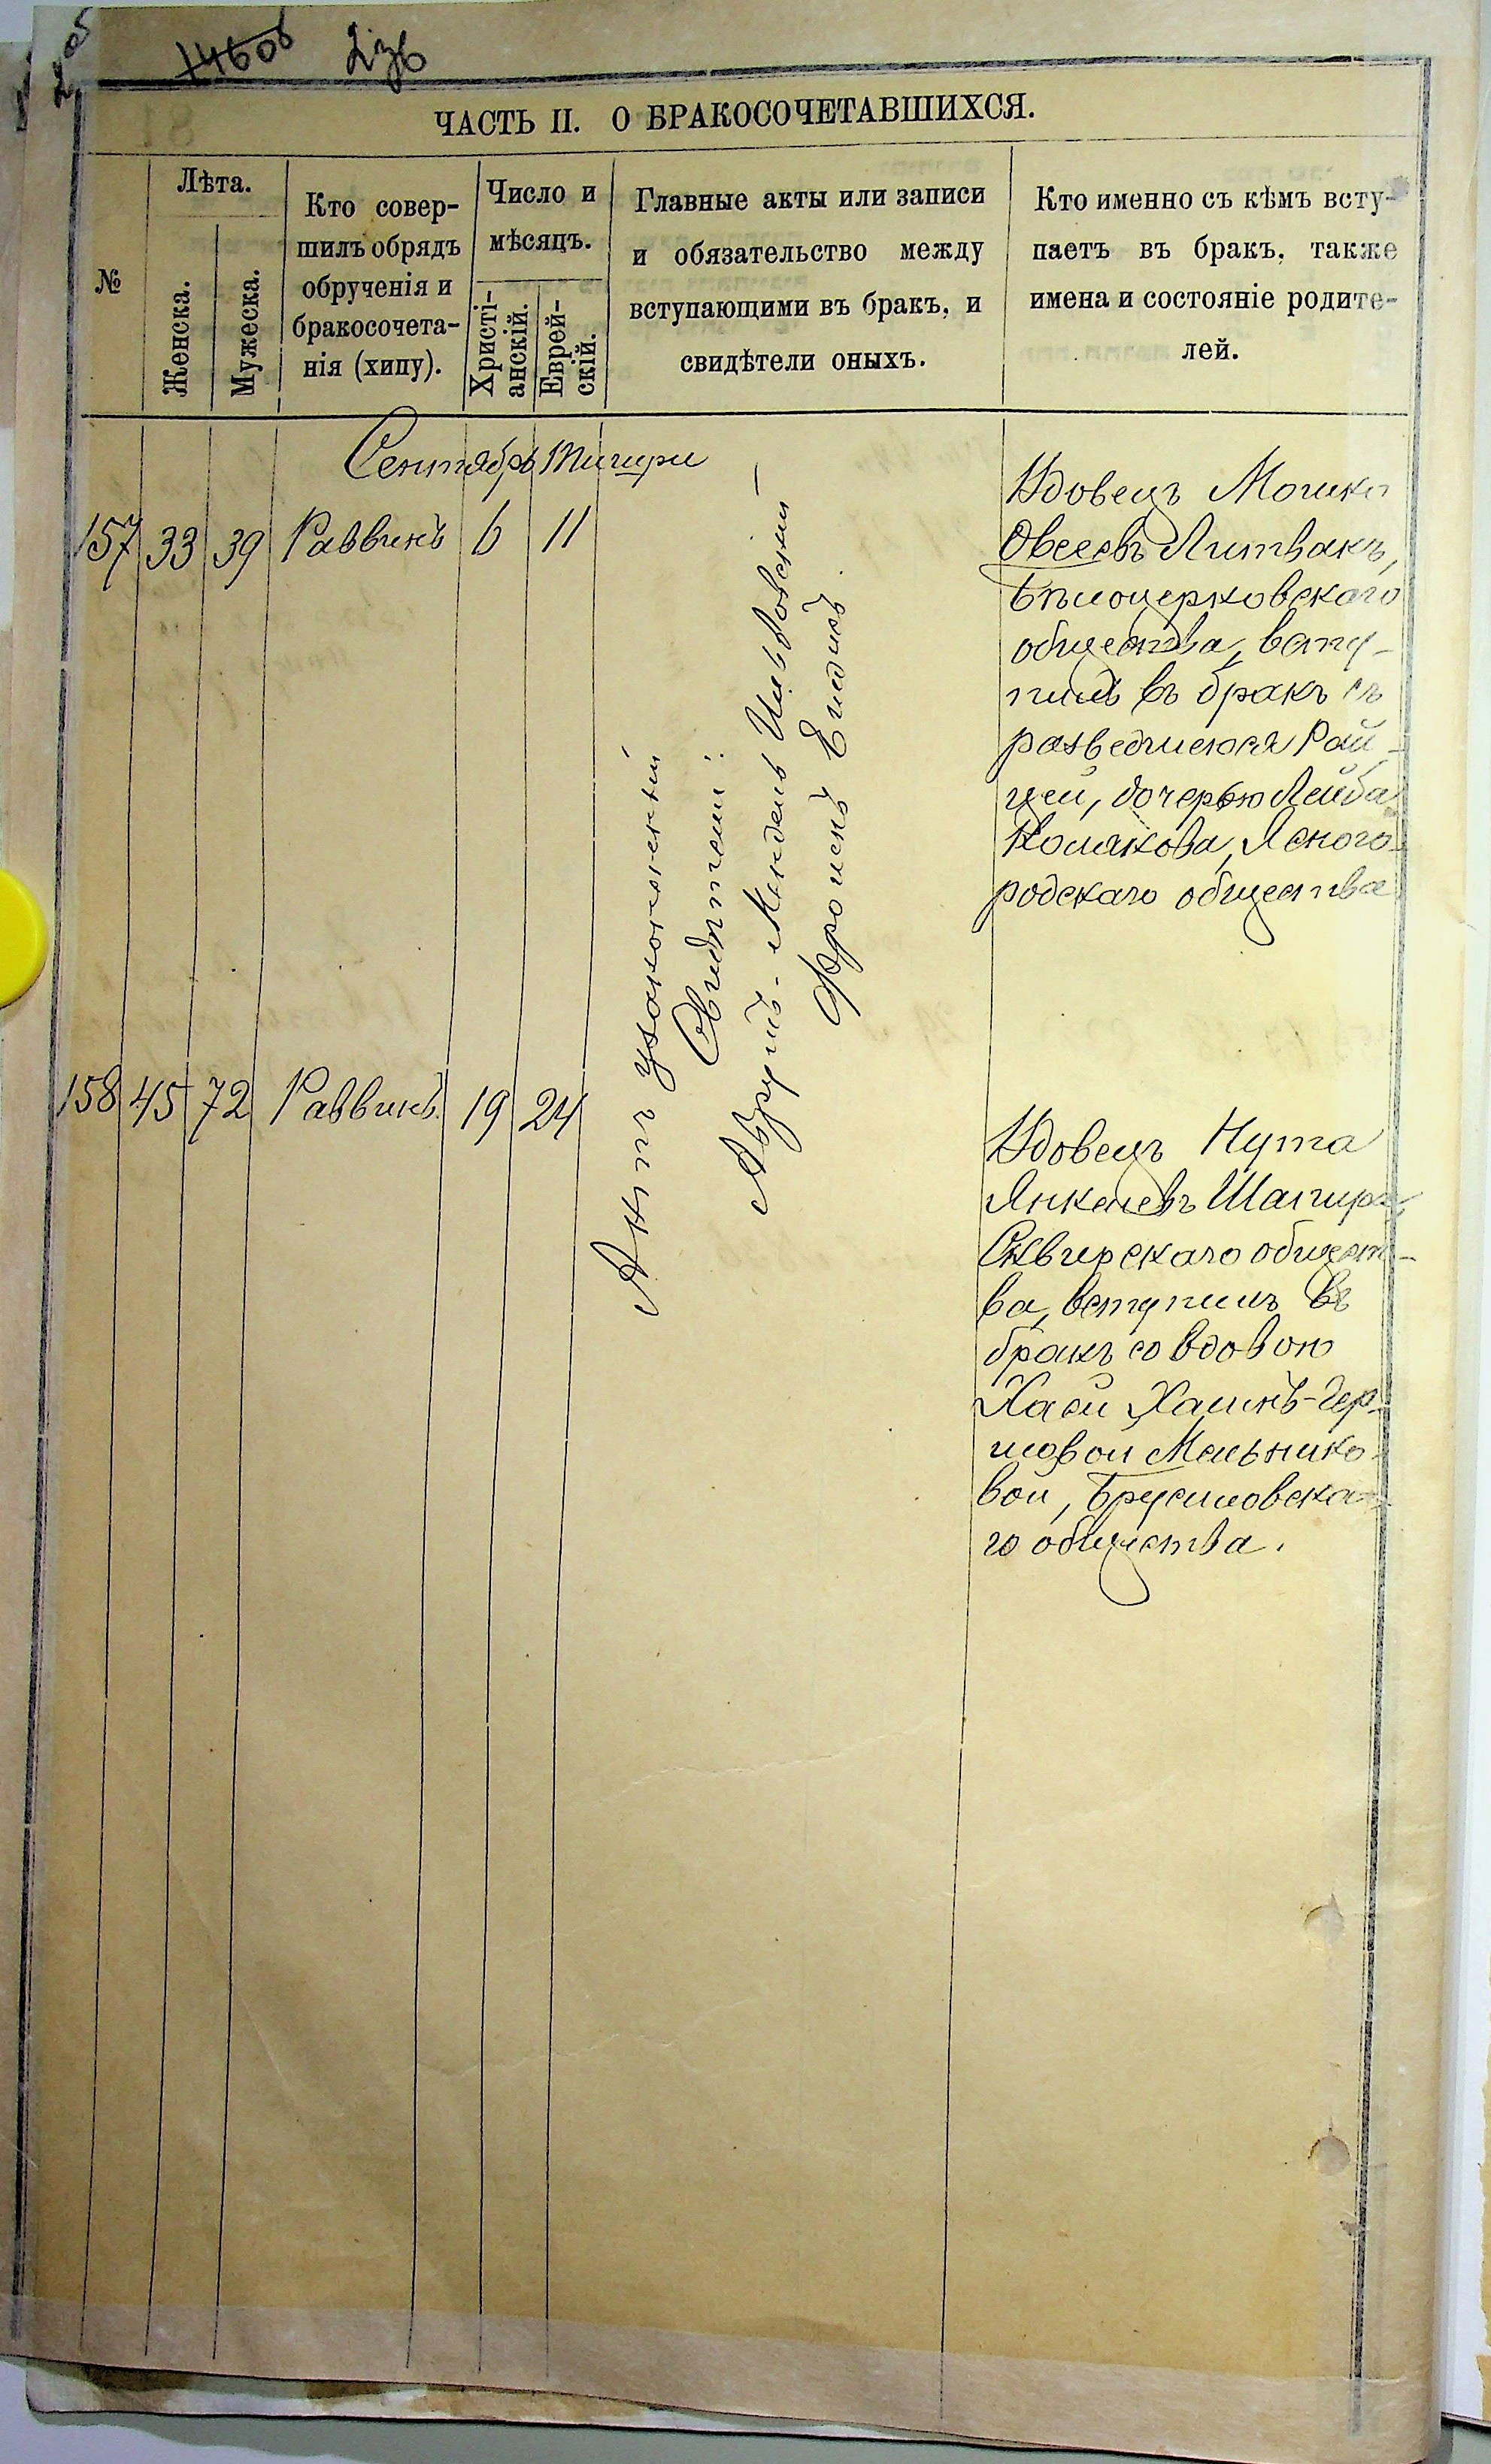 14606 236
ЧАСТЬ II. О БРАКОСОЧЕТАВШИХСЯ.
№
Лѣта.
Женска.
Мужеска.
Кто совер-
шилъ обрядъ
обрученія и
бракосочета-
нія (хипу).
Число и
мѣсяцъ.
Христі-
анскій.
Еврей-
скій.
Главные акты или записи
и обязательство между
вступающими въ бракъ, и
свидѣтели оныхъ.
Кто именно съ кѣмъ всту-
паетъ въ бракъ, также
имена и состояніе родите-
лей.
Сентябрь Тишри
157 33 39 Раввинъ 6 11
Актъ узаконенный
Свидѣтели:
Аврумъ-Мендель
Фроимъ
Вдовецъ Мошко
Овсеевъ Литвакъ,
Бѣлоцерковскаго
общества, всту-
пилъ въ бракъ съ
разведшеюся Рай-
цей, дочерью Лейба
Полякова, Ясного-
родскаго общества
158 45 72 Раввинъ 19 24
Вдовецъ Нута
Янкелевъ Шапиро,
Сквирскаго общест-
ва, вступилъ въ
бракъ со вдовою
Хаей Хаимъ-Гер-
шовой Мельнико-
вой, Брусиловска-
го общества.